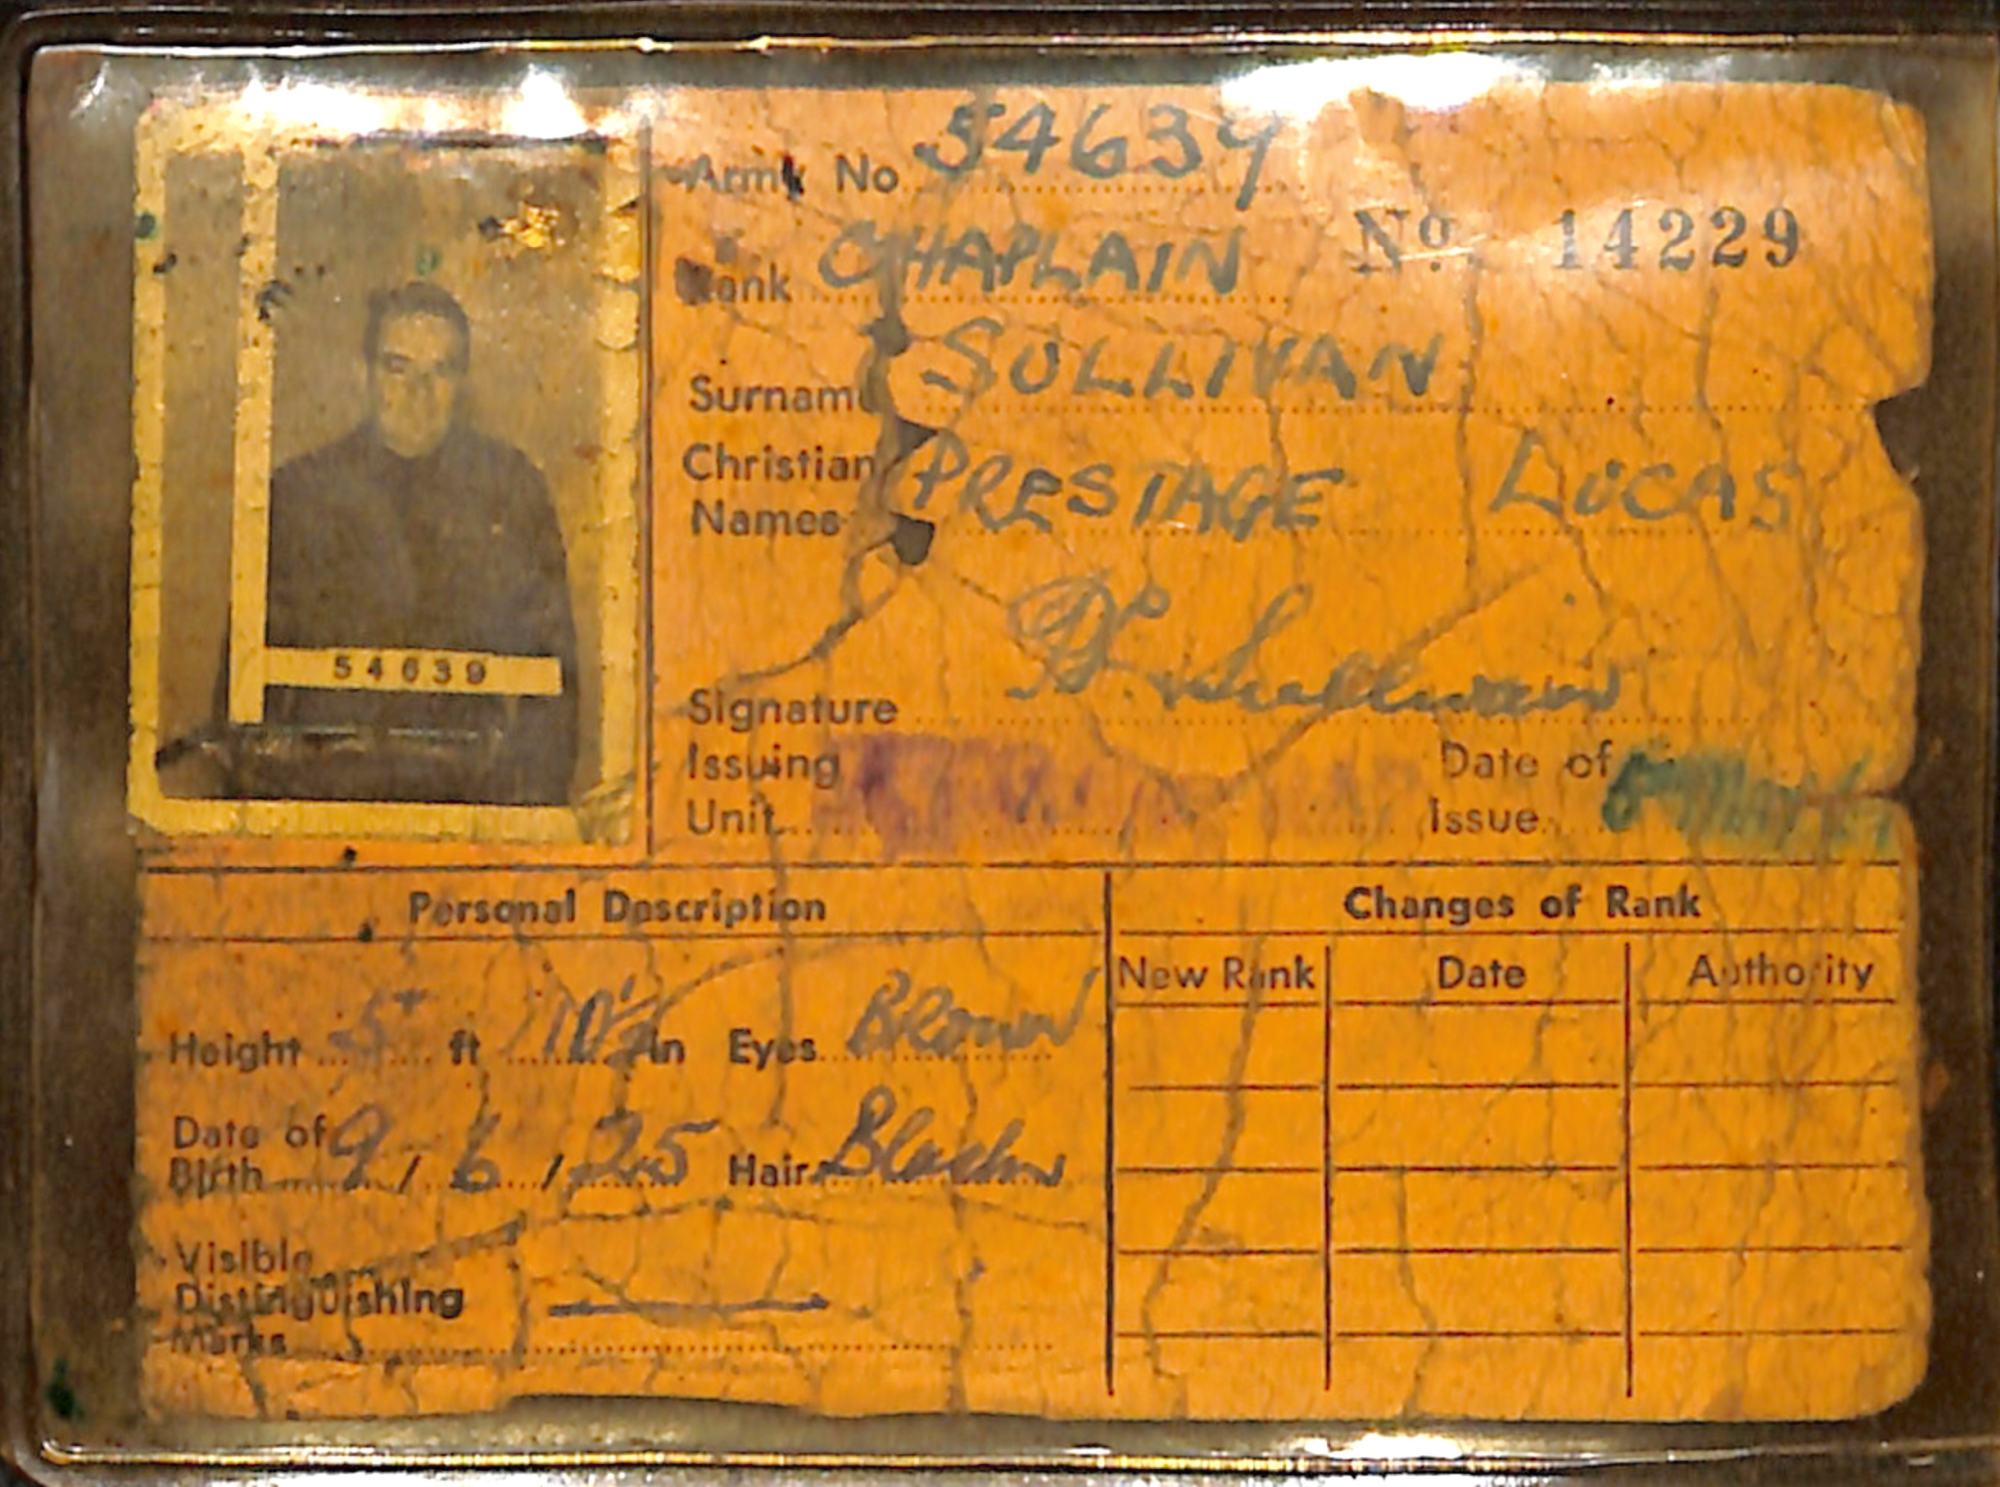 54639
Army No 54639
Rank CHAPLAIN No. 14229
Surname SULLIVAN
Christian Names PRESTAGE LUCAS
Signature P. L. Sullivan
Issuing Unit
Date of Issue
Personal Description
Height 5 ft 10½ in Eyes Brown
Date of Birth 9/6/25 Hair
Visible Distinguishing Marks
Changes of Rank
New Rank Date Authority